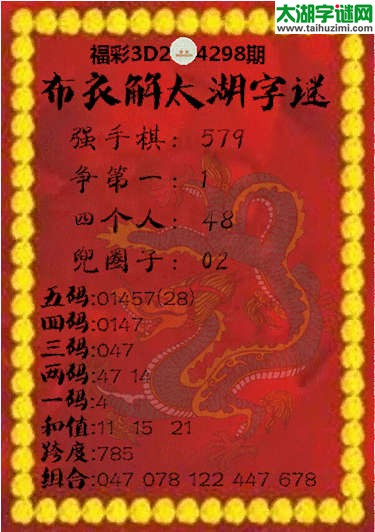 太湖字谜网
www.taihuzimi.com
福彩3D2 4298期
布衣解太湖字谜
强手棋：579
争第一：1
四个人：48
兜圈子：02
五码:01457(28)
四码:0147
三码:047
两码:47 14
一码:4
和值:11 15 21
跨度:785
组合:047 078 122 447 678